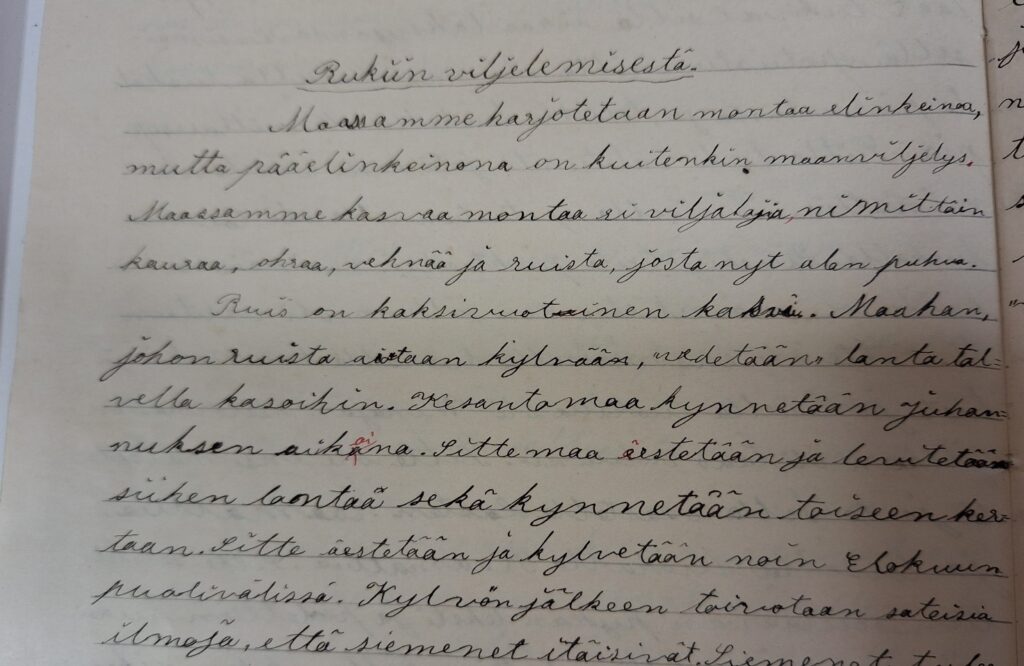 Rukiin viljelemisestä.
Maassamme harjotetaan montaa elinkeinoa,
mutta pääelinkeinona on kuitenkin maanviljelys.
Maassamme kasvaa montaa eri viljalajia, nimittäin
kauraa, ohraa, vehnää ja ruista, josta nyt alan puhua.
Ruis on kaksivuotuinen kasvi. Maahan,
johon ruista aiotaan kylvään, "vedetään" lanta tal=
vella kasoihin. Kesantomaa kynnetään juhan=
nuksen aikaina. Sitte maa äestetään ja levitetään
siihen lantaa sekä kynnetään toiseen ker=
taan. Sitte äestetään ja kylvetään noin Elokuun
puolivälissä. Kylvön jälkeen toivotaan sateisia
ilmoja, että siemenet itäisivät. Siemenet